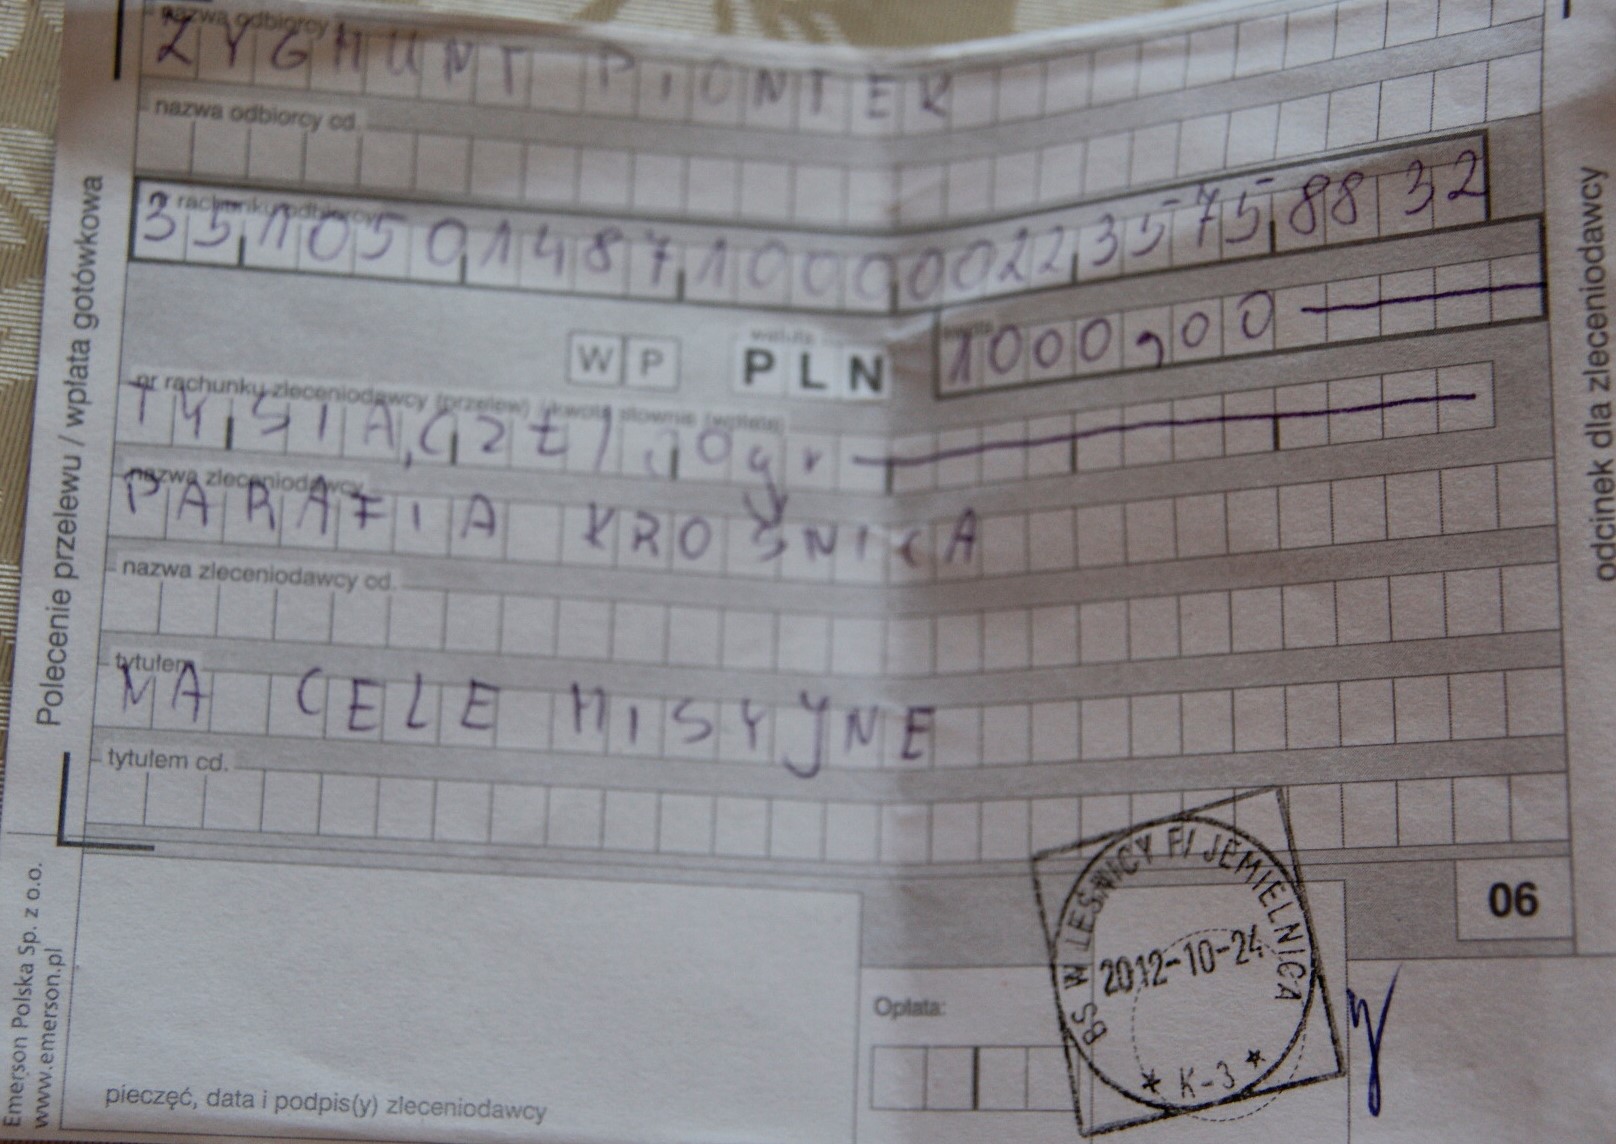 nazwa odbiorcy
ZYGMUNT PIONTEK
nazwa odbiorcy cd.
nr rachunku odbiorcy
35 1050 1487 1000 0022 3575 8832
W P
waluta
PLN
kwota
1000,00
nr rachunku zleceniodawcy (przelew) / kwota słownie (wpłata)
TYSIĄC ZŁ, 0gr
nazwa zleceniodawcy
PARAFIA KROŚNICA
nazwa zleceniodawcy cd.
tytułem
NA CELE MISYJNE
tytułem cd.
06
Opłata:
pieczęć, data i podpis(y) zleceniodawcy
BS W LEŚNICY F/JEMIELNICA
2012-10-24
* K-3 *
Polecenie przelewu / wpłata gotówkowa
odcinek dla zleceniodawcy
Emerson Polska Sp. z o.o.
www.emerson.pl